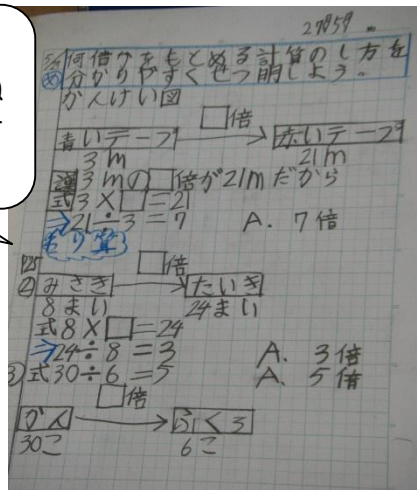 何倍かをもとめる計算のし方を
分かりやすくせつ明しよう。
かんけい図
□倍
青いテープ → 赤いテープ
3m 21m
3mの□倍が21mだから
式3×□=21
⇒21÷3=7 A. 7倍
わり算
P25 □倍
② みさき → たいき
8まい 24まい
式8×□=24
⇒24÷8=3 A. 3倍
③ 式30÷6=5 A. 5倍
□倍
→ ふくろ
30こ 6こ